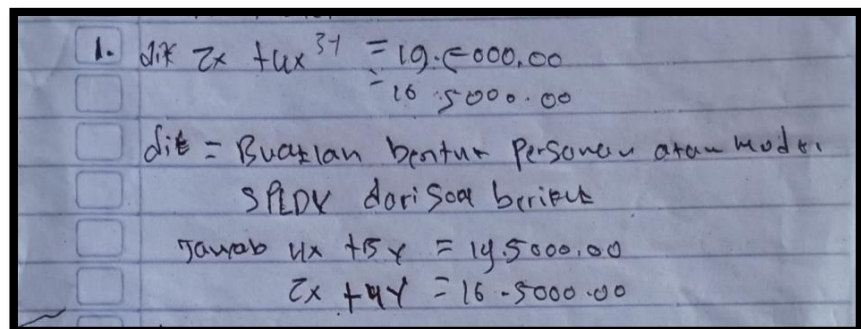 1. dik 2x +4x 34 = 19.5000,00
= 16.5000.00
dit = Buatlan bentuk Persamaan atau Model
SPLDV dari Soal berikut
Jawab 4x +5y = 19.5000,00
2x +4y = 16-5000.00